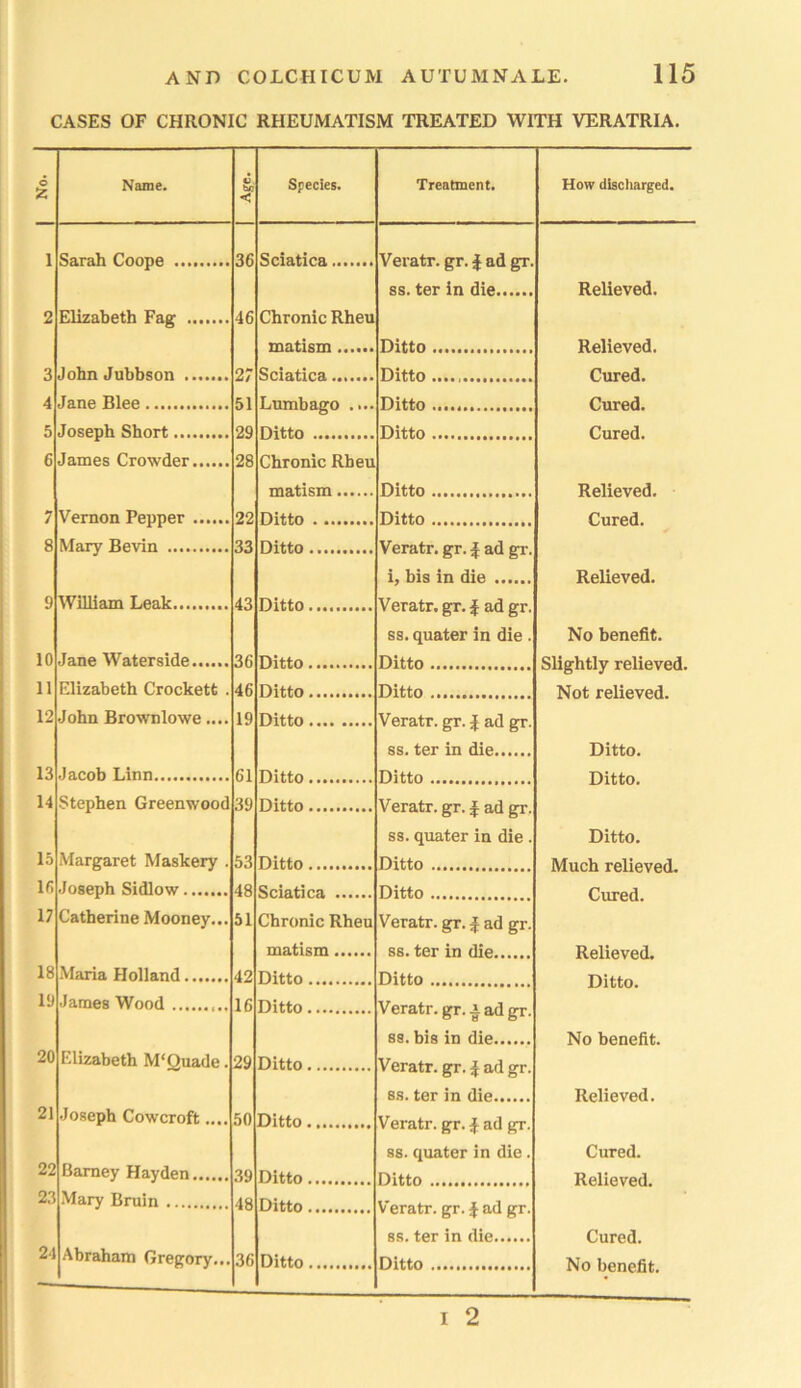 AND COLCHICUM AUTUMNALE. 115
CASES OF CHRONIC RHEUMATISM TREATED WITH VERATRIA.
No. Name. Age. Species. Treatment. How discharged.
1 Sarah Coope .......... 36 Sciatica ....... Veratr. gr. ¼ ad gr.
ss. ter in die...... Relieved.
2 Elizabeth Fag ....... 46 Chronic Rheu
matism ...... Ditto ................. Relieved.
3 John Jubbson ....... 27 Sciatica ....... Ditto ................. Cured.
4 Jane Blee ............. 51 Lumbago .... Ditto ................. Cured.
5 Joseph Short .......... 29 Ditto ........... Ditto ................. Cured.
6 James Crowder...... 28 Chronic Rheu
matism ...... Ditto ................. Relieved.
7 Vernon Pepper ...... 22 Ditto .......... Ditto ................. Cured.
8 Mary Bevin ........... 33 Ditto ........... Veratr. gr. ¼ ad gr.
i, bis in die ...... Relieved.
9 William Leak.......... 43 Ditto ........... Veratr. gr. ¼ ad gr.
ss. quater in die . No benefit.
10 Jane Waterside...... 36 Ditto ........... Ditto ................. Slightly relieved.
11 Elizabeth Crockett . 46 Ditto ........... Ditto ................. Not relieved.
12 John Brownlowe .... 19 Ditto .... ..... Veratr. gr. ¼ ad gr.
ss. ter in die...... Ditto.
13 Jacob Linn............. 61 Ditto ........... Ditto ................. Ditto.
14 Stephen Greenwood 39 Ditto ........... Veratr. gr. ¼ ad gr.
ss. quater in die . Ditto.
15 Margaret Maskery . 53 Ditto ........... Ditto ................. Much relieved.
16 Joseph Sidlow ....... 48 Sciatica ...... Ditto ................. Cured.
17 Catherine Mooney... 51 Chronic Rheu Veratr. gr. ¼ ad gr.
matism ...... ss. ter in die...... Relieved.
18 Maria Holland ....... 42 Ditto ........... Ditto ................. Ditto.
19 James Wood ......... 16 Ditto ........... Veratr. gr. ⅛ ad gr.
ss. bis in die...... No benefit.
20 Elizabeth M‘Quade . 29 Ditto ........... Veratr. gr. ¼ ad gr.
ss. ter in die...... Relieved.
21 Joseph Cowcroft .... 50 Ditto ........... Veratr. gr. ¼ ad gr.
ss. quater in die . Cured.
22 Barney Hayden...... 39 Ditto ........... Ditto ................. Relieved.
23 Mary Bruin ........... 48 Ditto ........... Veratr. gr. ¼ ad gr.
ss. ter in die...... Cured.
24 Abraham Gregory... 36 Ditto ........... Ditto ................. No benefit.
I 2